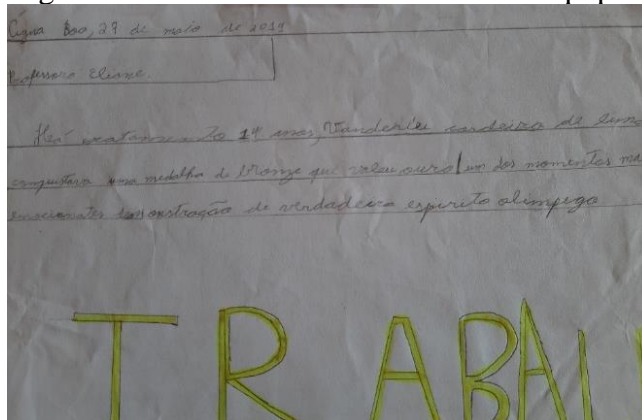 Água Boa, 29 de maio de 2019
Professora Eliane.
14 anos, Vanderlei cordeiro de lima
conquistava uma medalha de bronze que valeu ouro/um dos momentos
emocionates demonstração de verdadeiro espirito olimpego
TRABAL